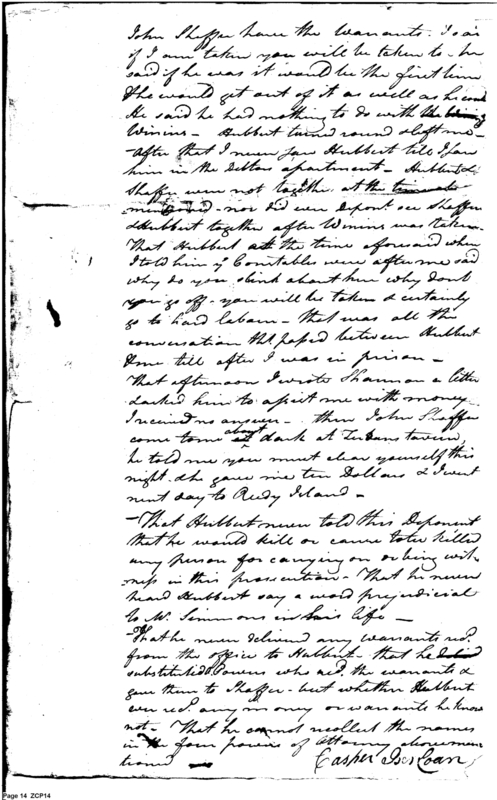 John Shaffer have the Warrants. So as
if I am taken you will be taken to - he
said if he was it would be the first time
& he would get out of it as well as he could
He said he had nothing to do with
Winins - Hubbert turned round & left me -
- After that I never saw Hubbert till I saw
him in the Debtors apartment - Hubbert &
Shaffer were not together at the
mentioned - nor did ever Depont see Shaffer
& Hubbert together after Winins was taken -
That Hubbert at the time aforesaid when
I told him ye Constables were after me said
why do you stink about here why dont
you go off - you will be taken & certainly
go to hard labour - that was all the
conversation tht passed between Hubbert
& me till after I was in prison -
That afternoon I wrote Shannon a letter
& asked him to assist me with money
I received no answer - then John Shaffer
come to me about dark at tavern,
he told me you must clear yourself this
night & he gave me ten Dollars & I went
next day to Reedy Island -
- That Hubbert never told this Deponent
that he would kill or cause to be killed
any person for carrying on or being wit-
ness in this prosecution - That he never
heard Hubbert say a word prejudicial
to Mr. Simmons in his life -
That he never delivered any warrants recd.
from the office to Hubbert - that he
substituted Powers who recd. the warrants &
gave them to Shaffer - but whether Hubbert
ever recd. any money or warrants he knows
not - That he cannot recollect the names
in the four powers of Attorney abovemen
tioned
Casper
Page 14 ZCP14